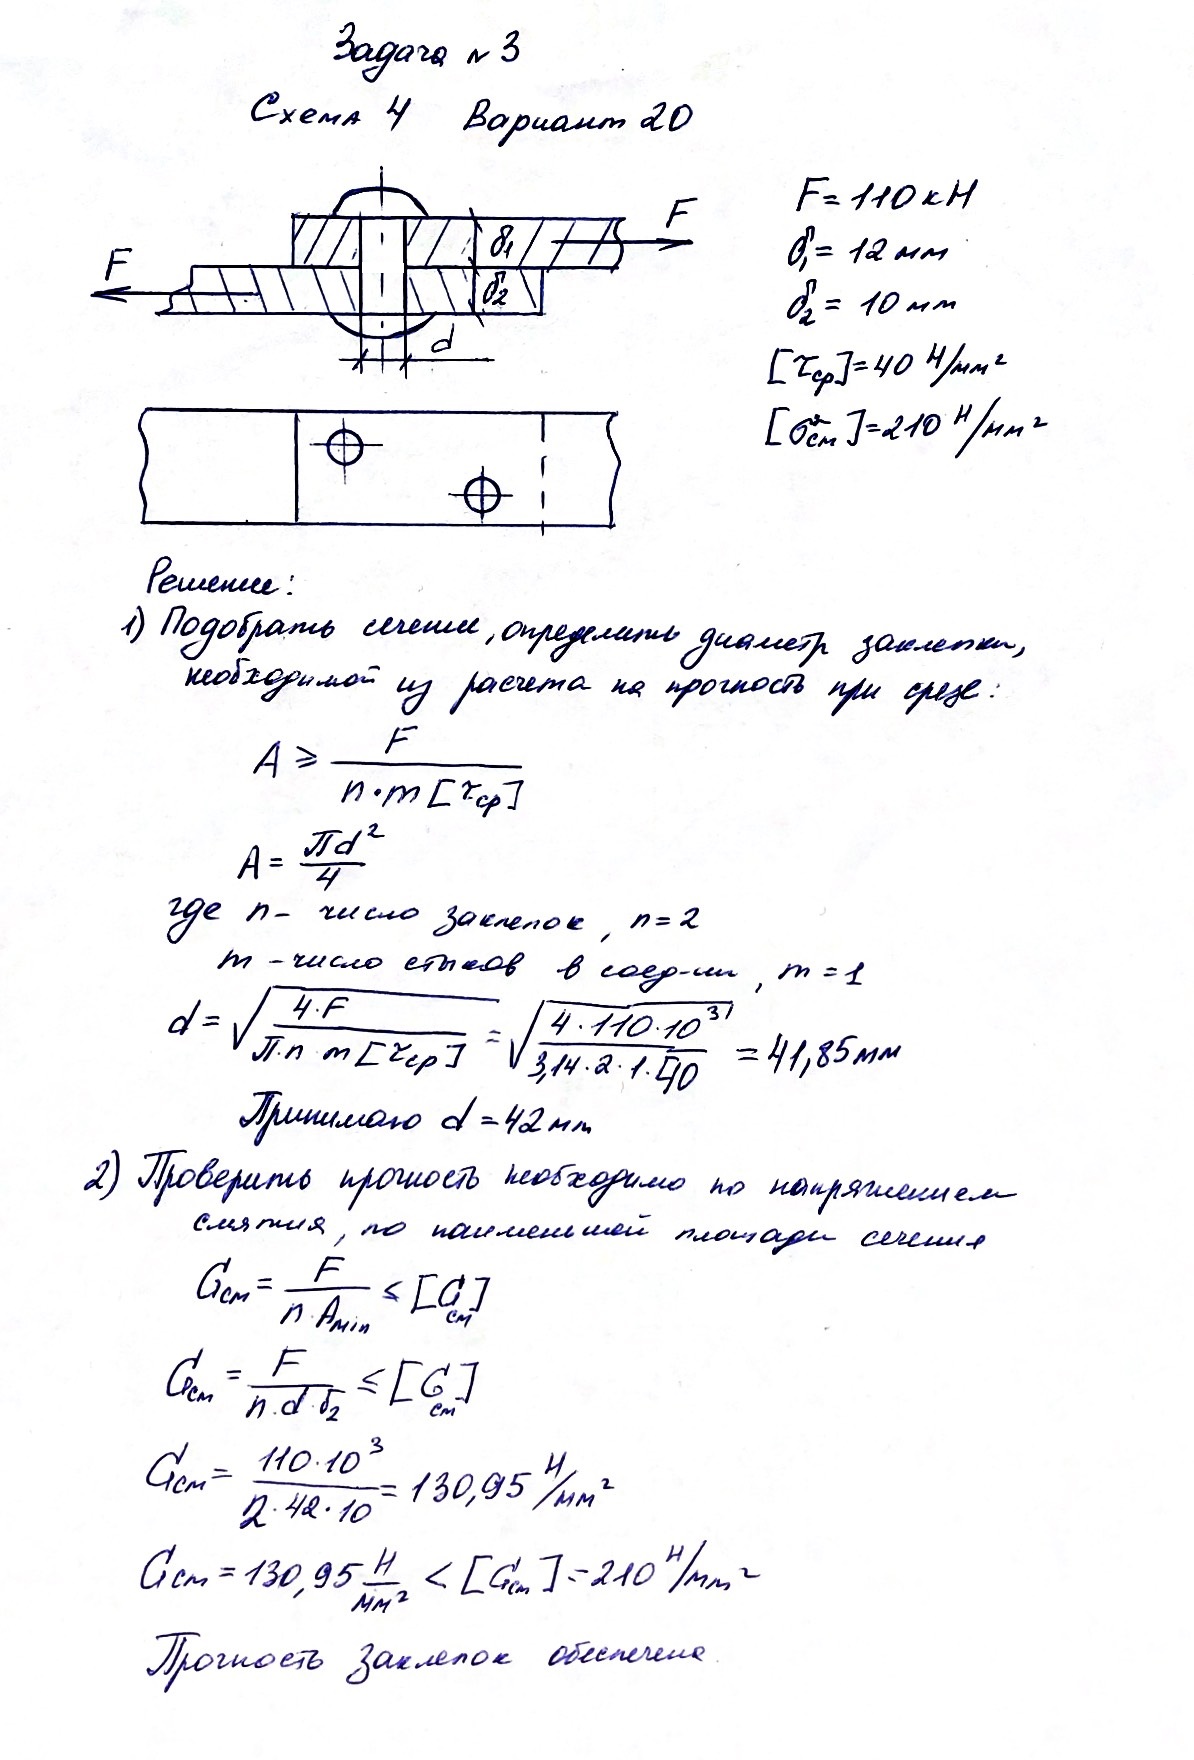 Задача № 3
Схема 4 Вариант 20
F
F
δ1
δ2
d
F = 110 кН
δ1 = 12 мм
δ2 = 10 мм
[τср] = 40 Н/мм²
[σсм] = 210 Н/мм²
Решение:
1) Подобрать сечение, определить диаметр заклепки,
необходимой из расчета на прочность при срезе:
A ≥ F / n·m[τср]
A = Пd² / 4
где n – число заклепок, n = 2
m – число стыков в соед-ии, m = 1
d = √(4·F / П·n·m[τср]) = √(4·110·10³ / 3,14·2·1·40) = 41,85 мм
Принимаю d = 42 мм
2) Проверить прочность необходимо по напряжением
смятия, по наименьшей площади сечения
σсм = F / n·Amin ≤ [σсм]
σсм = F / n·d·δ2 ≤ [σсм]
σсм = 110·10³ / 2·42·10 = 130,95 Н/мм²
σсм = 130,95 Н/мм² < [σсм] = 210 Н/мм²
Прочность заклепок обеспечена.